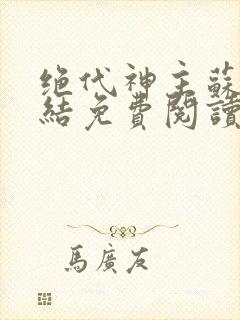 绝代神主蘇
結免費閱讀
馬廣友